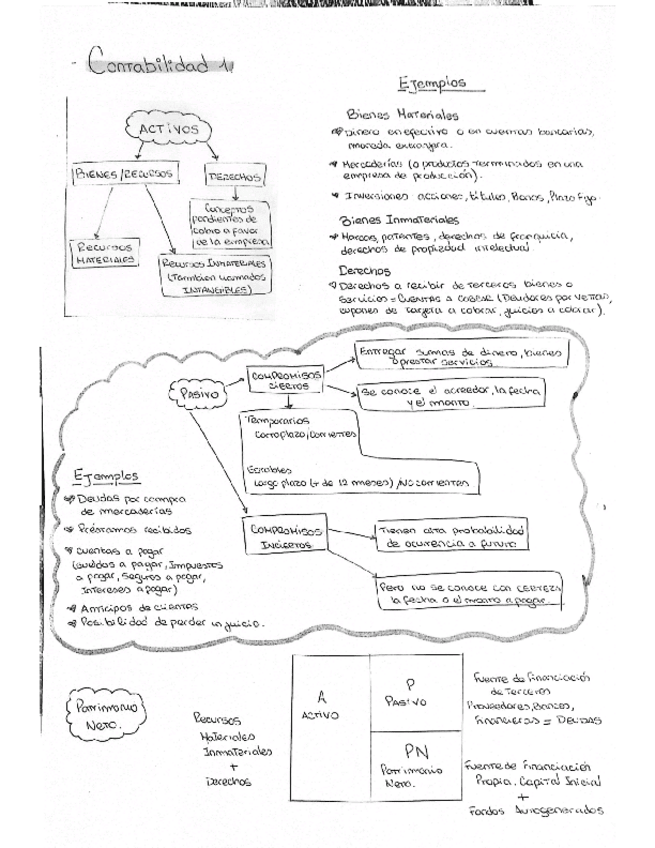 - Contabilidad 1.
ACTIVOS
BIENES/RECURSOS
DERECHOS
Conceptos
pendientes de
cobro a favor
de la empresa
RECURSOS
MATERIALES
RECURSOS INMATERIALES
(También llamados
INTANGIBLES)
Ejemplos
Bienes Materiales
Dinero en efectivo o en cuentas bancarias,
moneda extranjera.
Mercaderías (o productos terminados en una
empresa de producción).
Inversiones acciones, títulos, Bonos, Plazo fijo.
Bienes Inmateriales
Marcas, patentes, derechos de franquicia,
derechos de propiedad intelectual
Derechos
Derechos a recibir de terceros bienes o
servicios = Cuentas a cobrar (Deudores por ventas,
cupones de tarjeta a cobrar, juicios a cobrar).
PASIVO
COMPROMISOS
CIERTOS
Entregar sumas de dinero, bienes
o prestar servicios
Se conoce el acreedor, la fecha
y el monto.
Temporarios
Corto plazo, corrientes
Estables
Largo plazo (+ de 12 meses), No corrientes
COMPROMISOS
INCIERTOS
Tienen alta probabilidad
de ocurencia a futuro.
Pero no se conoce con CERTEZA
la fecha o el monto a pagar.
Ejemplos
Deudas por compra
de mercaderías
Préstamos recibidos
Cuentas a pagar
(sueldos a pagar, Impuestos
a pagar, seguros a pagar,
Intereses a pagar)
Anticipos de clientes
Posibilidad de perder un juicio.
Patrimonio
Neto.
Recursos
Materiales
Inmateriales
+
Derechos
A
ACTIVO
P
PASIVO
PN
Patrimonio
Neto.
Fuente de Financiación
de Terceros
Proveedores, Bancos,
Financieras = DEUDAS
Fuente de Financiación
Propia. Capital Inicial
+
Fondos Autogenerados